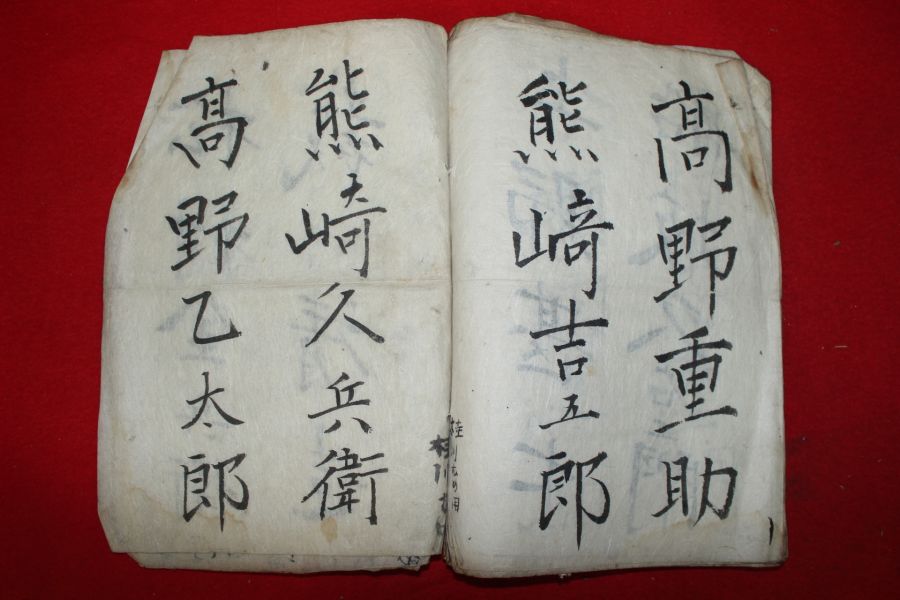 髙野重助
熊﨑吉五郎
熊崎久兵衛
髙野乙太郎